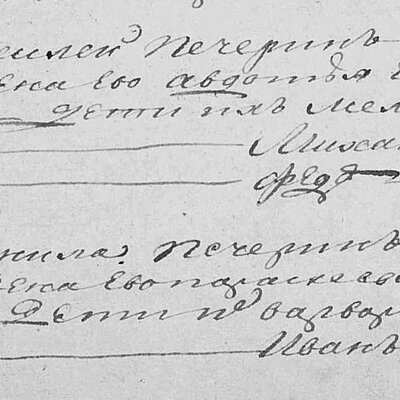 Печеринъ
ена Ево авдотья
Дети ихъ мел
Миха
федо
нила Печеринъ
ена Ево параскева
Дети и варвар
Иванъ